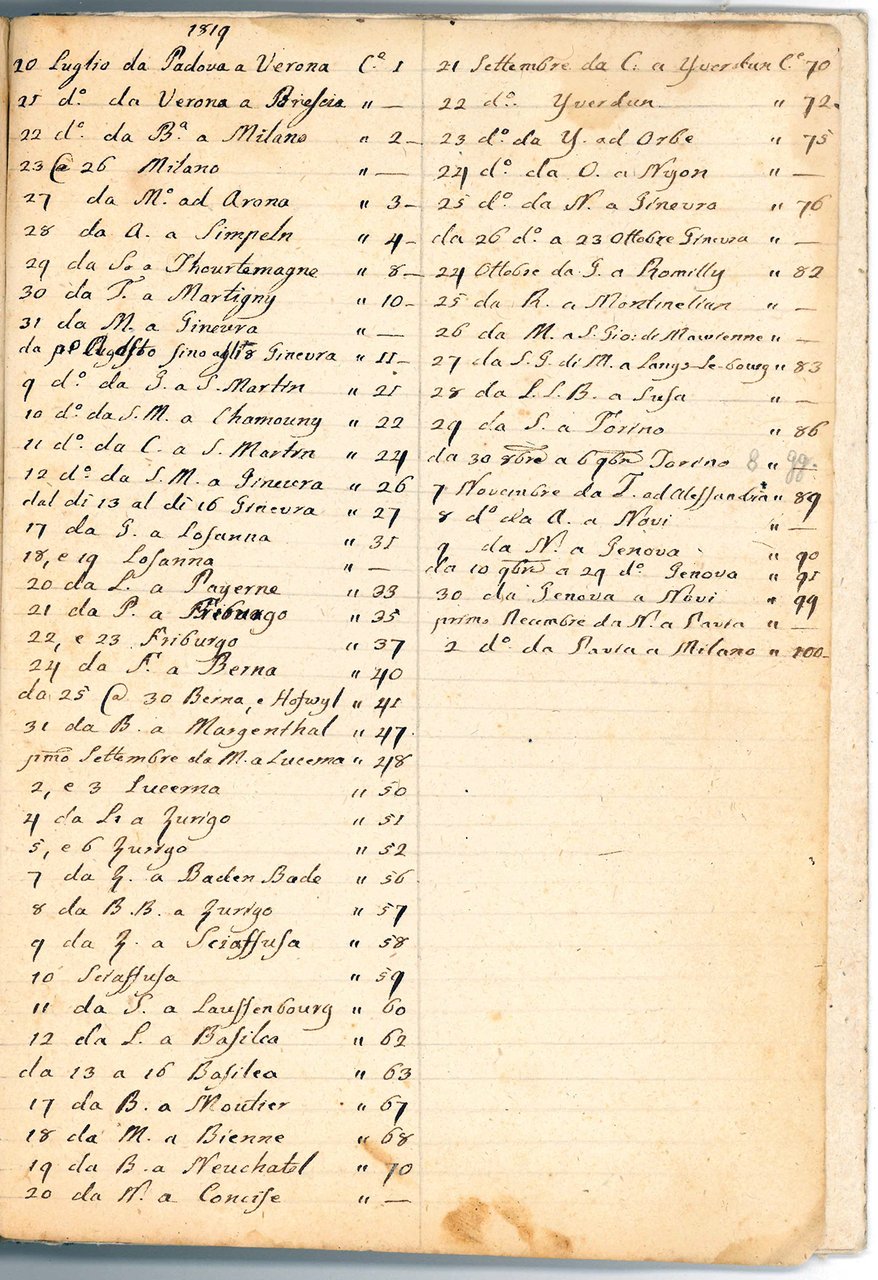 1819
20 Luglio da Padova a Verona C.º 1
21 d.º da Verona a Brescia " —
22 d.º da B.ª a Milano " 2 —
23 @ 26 Milano " —
27 da M.º ad Arona " 3 —
28 da A. a Simpeln " 4 —
29 da S. a Thourtemagne " 8 —
30 da T. a Martigny " 10 —
31 da M. a Ginevra " —
da pº Agosto sino agli 8 Ginevra " 11 —
9 d.º da G. a S. Martin " 21
10 d.º da S. M. a Chamouny " 22
11 d.º da C. a S. Martin " 24
12 d.º da S. M. a Ginevra " 26
dal di 13 al di 16 Ginevra " 27
17 da G. a Losanna " 31
18, e 19 Losanna " —
20 da L. a Payerne " 33
21 da P. a Friburgo " 35
22, e 23 Friburgo " 37
24 da F. a Berna " 40
da 25 @ 30 Berna, e Hofwyl " 41
31 da B. a Margenthal " 47
pmo Settembre da M. a Lucerna " 48
2, e 3 Lucerna " 50
4 da L. a Zurigo " 51
5, e 6 Zurigo " 52
7 da Z. a Baden Bade " 56
8 da B. B. a Zurigo " 57
9 da Z. a Sciaffusa " 58
10 Sciaffusa " 59
11 da S. a Lauffenbourg " 60
12 da L. a Basilea " 62
da 13 a 16 Basilea " 63
17 da B. a Moutier " 67
18 da M. a Bienne " 68
19 da B. a Neuchatel " 70
20 da N. a Concise " —
21 Settembre da C. a Yverdun C.º 70
22 d.º Yverdun " 72
23 d.º da Y. ad Orbe " 75
24 d.º da O. a Nyon " —
25 d.º da N. a Ginevra " 76
da 26 d.º a 23 Ottobre Ginevra " —
24 Ottobre da G. a Romilly " 82
25 da R. a Montmelian "
26 da M. a S. Gio: di Maurienne "
27 da S. G. di M. a Langs-le-bourg " 83
28 da L. L. B. a Susa " —
29 da S. a Torino " 86
da 30 8bre a 6 9bre Torino "
7 Novembre da T. ad Alessandria " 89
8 d.º da A. a Novi " —
9 da N. a Genova " 90
da 10 9bre a 29 d.º Genova " 91
30 da Genova a Novi " 99
primo Decembre da N. a Pavia " —
2 d.º da Pavia a Milano " 100 —